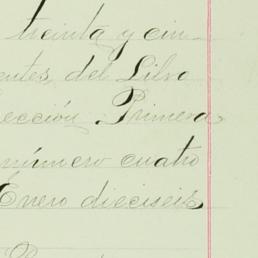 treinta y cin
entes, del Libro
ección Primera
número cuatro
Enero dieciseis